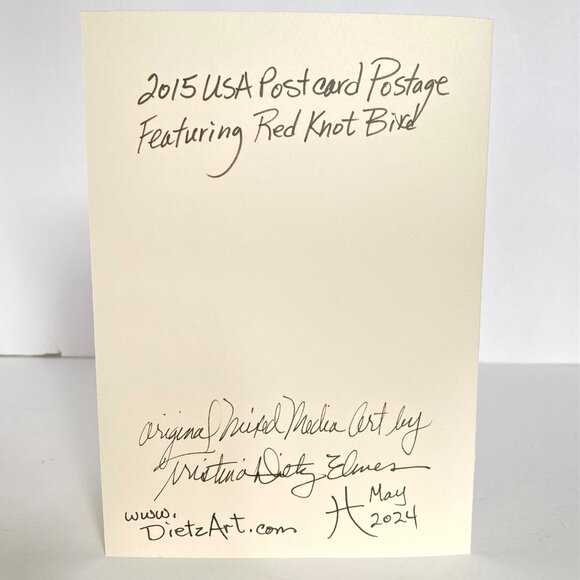 2015 USA Postcard Postage
Featuring Red Knot Bird
Original Mixed Media Art by
Kristina Dietz Elmes
www.
DietzArt.com
May
2024